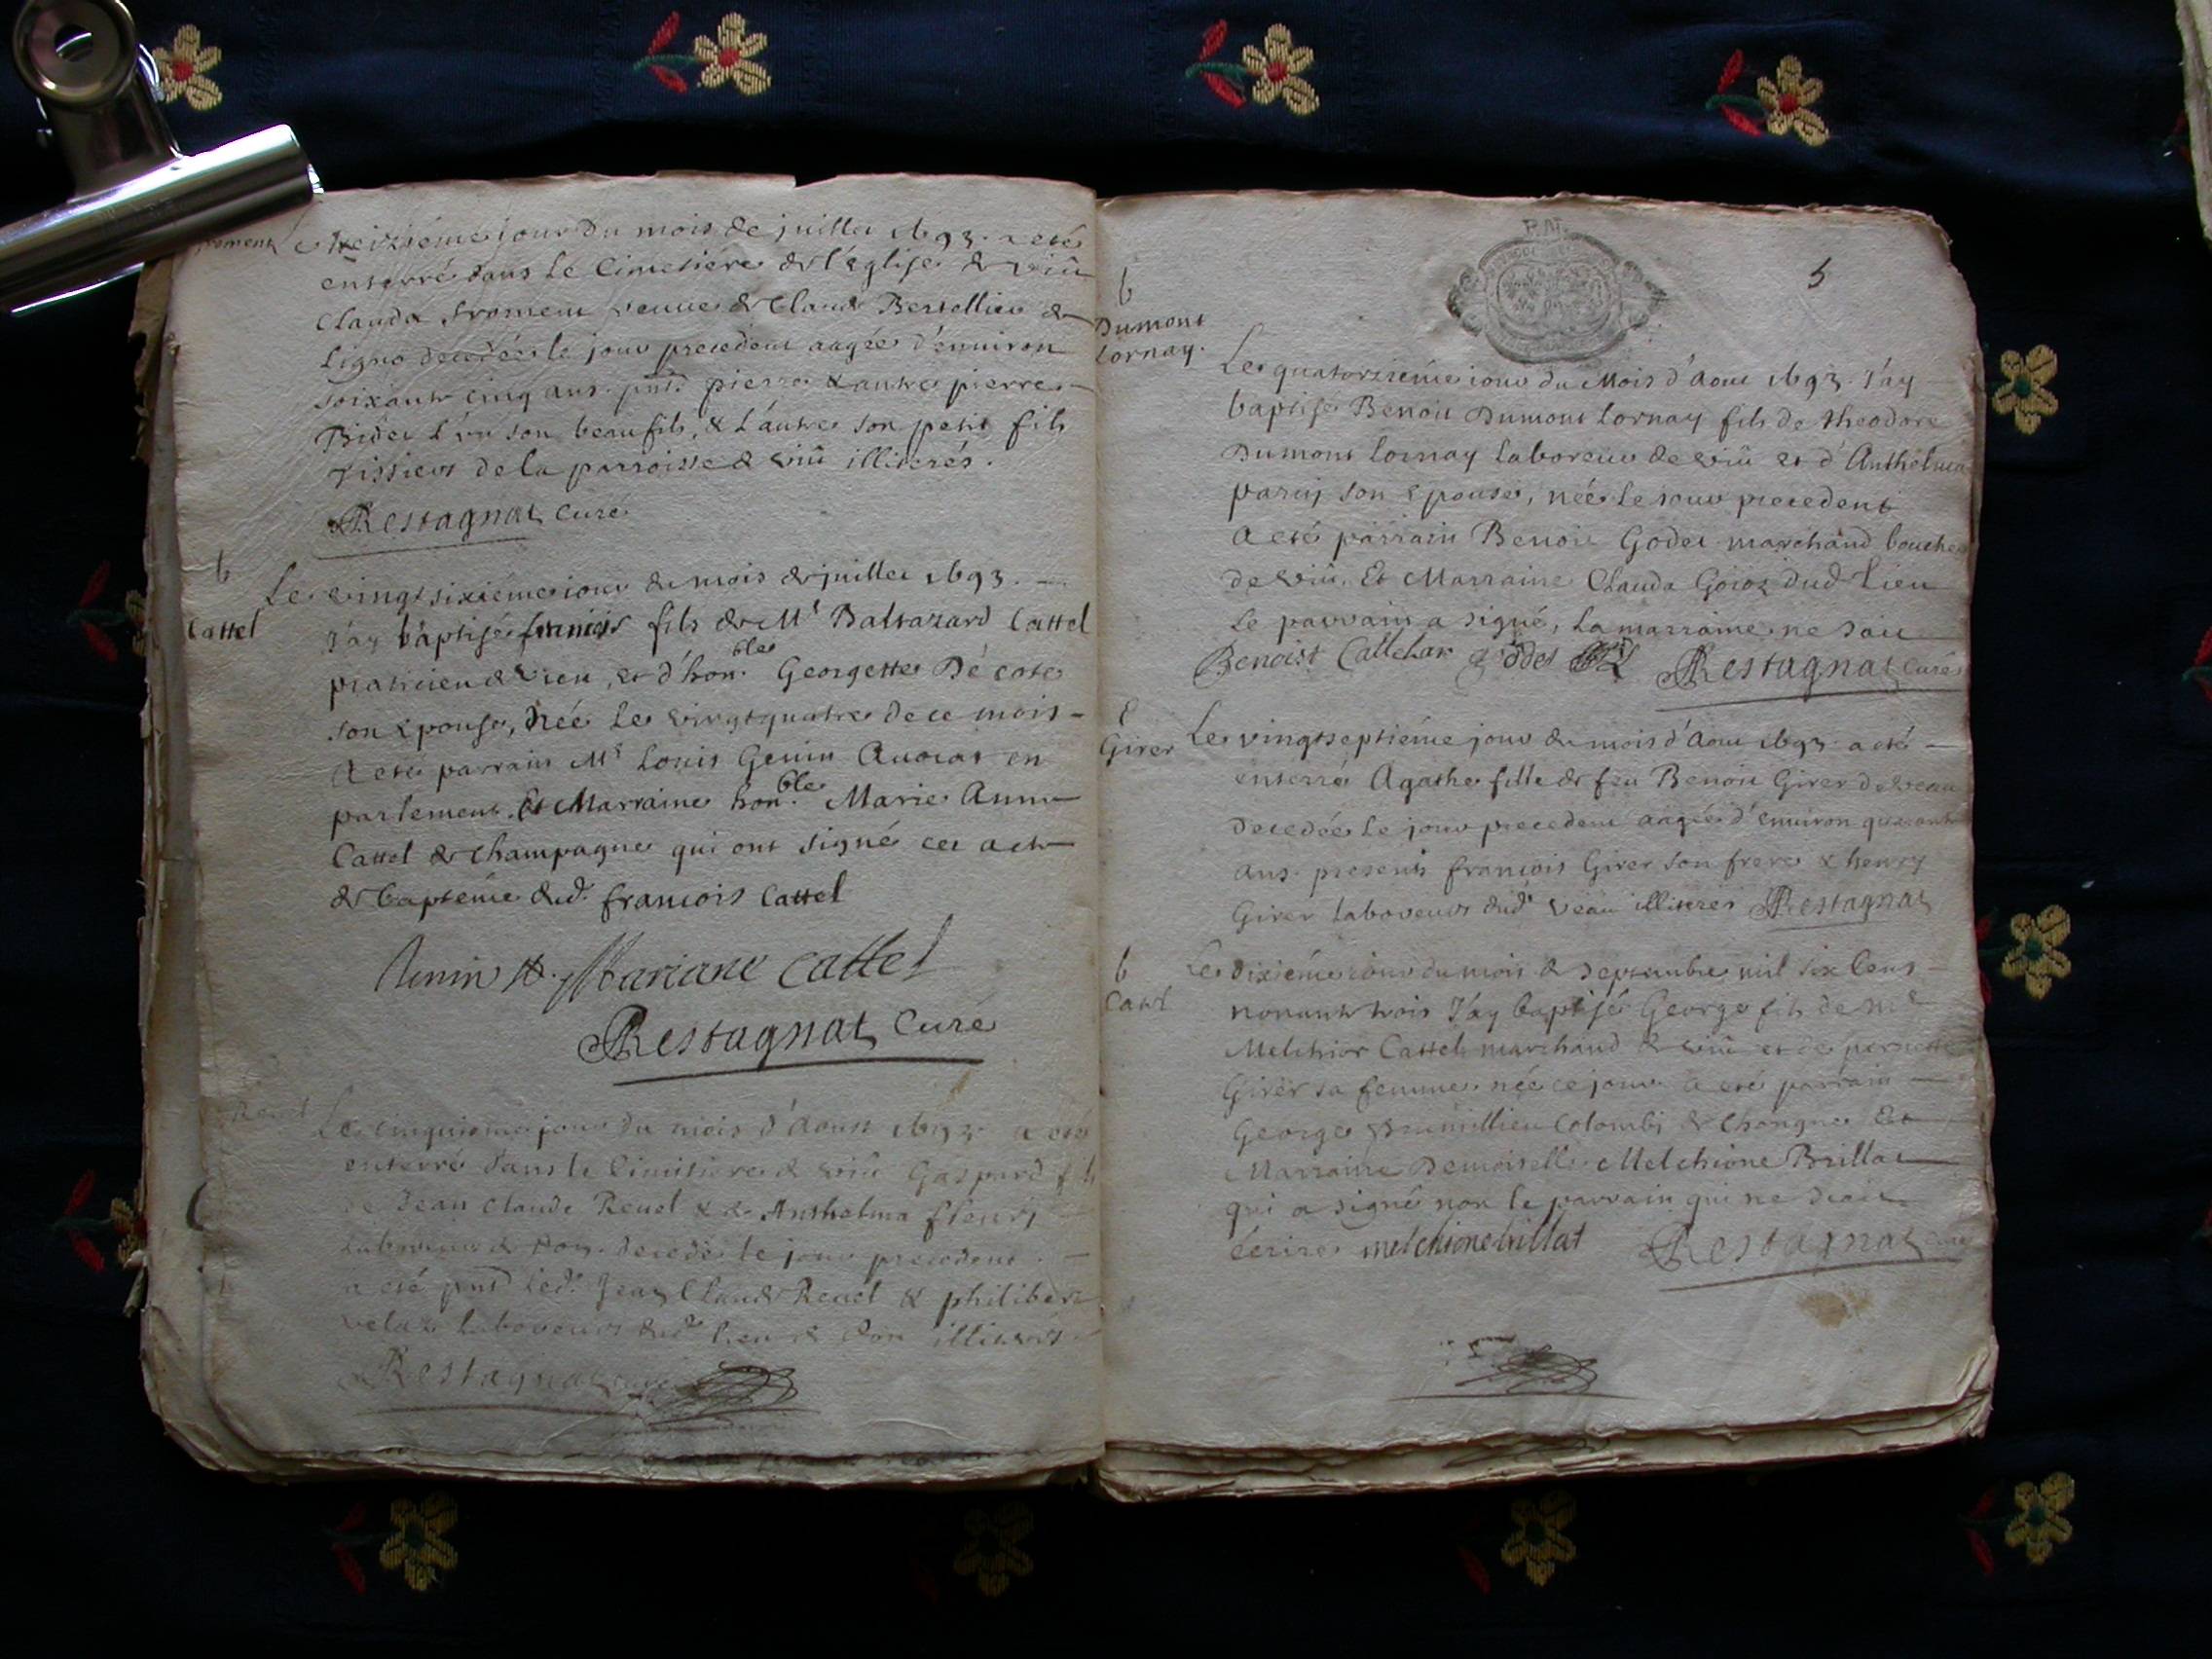 froment
Le treizième jour du mois de juillet 1693. a eté
enterré dans le Cimetiére de l'église de viû
Clauda froment veuve de Claude Bertellier de
Ligno decedée le jour precedent aagée d'environ
soixante cinq ans. pnts pierre & autre pierre
Bider l'un son beau fils, & l'autre son petit fils
Tissiers de la parroisse de viû illiterés.
Restagnat Curé
b
Cattel
Le vingt sixiéme jour du mois de juillet 1693.
J'ay baptisé francois fils de Mr Baltazard Cattel
praticien de vieu, et d'hon.ble Georgette Décote
son epouse, née le vingtquatre de ce mois
A eté parrain Mr Louis Genin Avocat en
parlement. Et Marraine hon.ble Marie Anne
Cattel de Champagne qui ont signé cet acte
de bapteme dud. francois Cattel
Genin Mariane Cattel
Restagnat Curé
Revel
Le cinquieme jour du mois d'Aoust 1693 a eté
enterré dans le Cimitiere de viû Gaspard fils
de Jean Claude Revel & de Anthelma fleury
laboureur de Don. decedé le jour precedent.
a eté pnt led. Jean Claude Revel & philibert
velat laboureurs dud. lieu de Don illiterés
Restagnat curé
5
b
Dumont
Lornay.
Le quatorziéme jour du Mois d'Aout 1693. J'ay
baptisé Benoit Dumont Lornay fils de theodore
Dumont Lornay laboureur de viû et d'Anthelma
son Epouse, née le jour precedent
A eté parrain Benoit Godet marchand boucher
de viû. Et Marraine Clauda Goioz dud. Lieu
Le parrain a signé, la marraine ne scait
Benoist Callehar godet Restagnat Curé
Girer
Le vingtseptiéme jour du mois d'Aout 1693. a eté
enterré Agathe fille de feu Benoit Girer de veau
decedée le jour precedent aagée d'environ quarante
ans. presents francois Girer son frere & henry
Girer laboureurs dud. veau illiterés Restagnat
b
Catel
Le dixiéme jour du mois de Septembre mil six Cens
nonante trois J'ay baptisé George fils de Mr
Melchior Cattel marchand de viû et de pernette
Girer sa femme née ce jour a eté parrain
George Brunillieu Colombi de Chongne Et
Marraine Demoiselle Melchione Brillat
qui a signé non le parrain qui ne scait
écrire melchione brillat Restagnat Curé